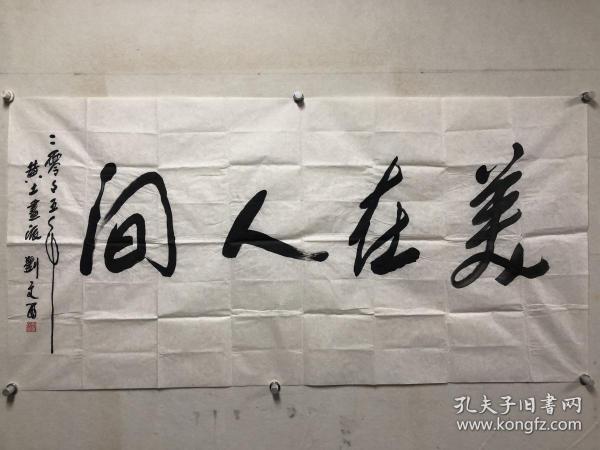 美在人间
二零零五年
黄土画派 刘文西
孔夫子旧書网
www.kongfz.com